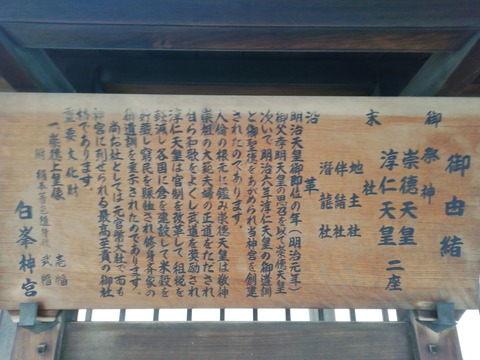 御由緒
御祭神
崇徳天皇
淳仁天皇
二座
末社
地主社
伴緒社
潜龍社
沿革
明治天皇御即位の年(明治元年)
御父孝明天皇の思召を以て崇徳天皇
次いで明治六年淳仁天皇の御遺訓
と御聖徳をあがめられ当神宮を創建
されたのであります
人倫の根元に鑑み崇徳天皇は敬神
崇祖の大範夫婦の正道をたゞされ
自ら和歌をよくし武道を奨励され
淳仁天皇は官制を改革して租税を
軽減し各国に倉を建設して米穀を
貯蔵し窮民を賑恤され修身斉家の
御遺訓を垂示されたのであります。
尚お社としては元官幣大社で而も
神宮に列せられる最高至貴の御社
格であります。
重要文化財
一、崇徳上皇像 壱幅
附 絹本着色随身像 弐幅
白峯神宮